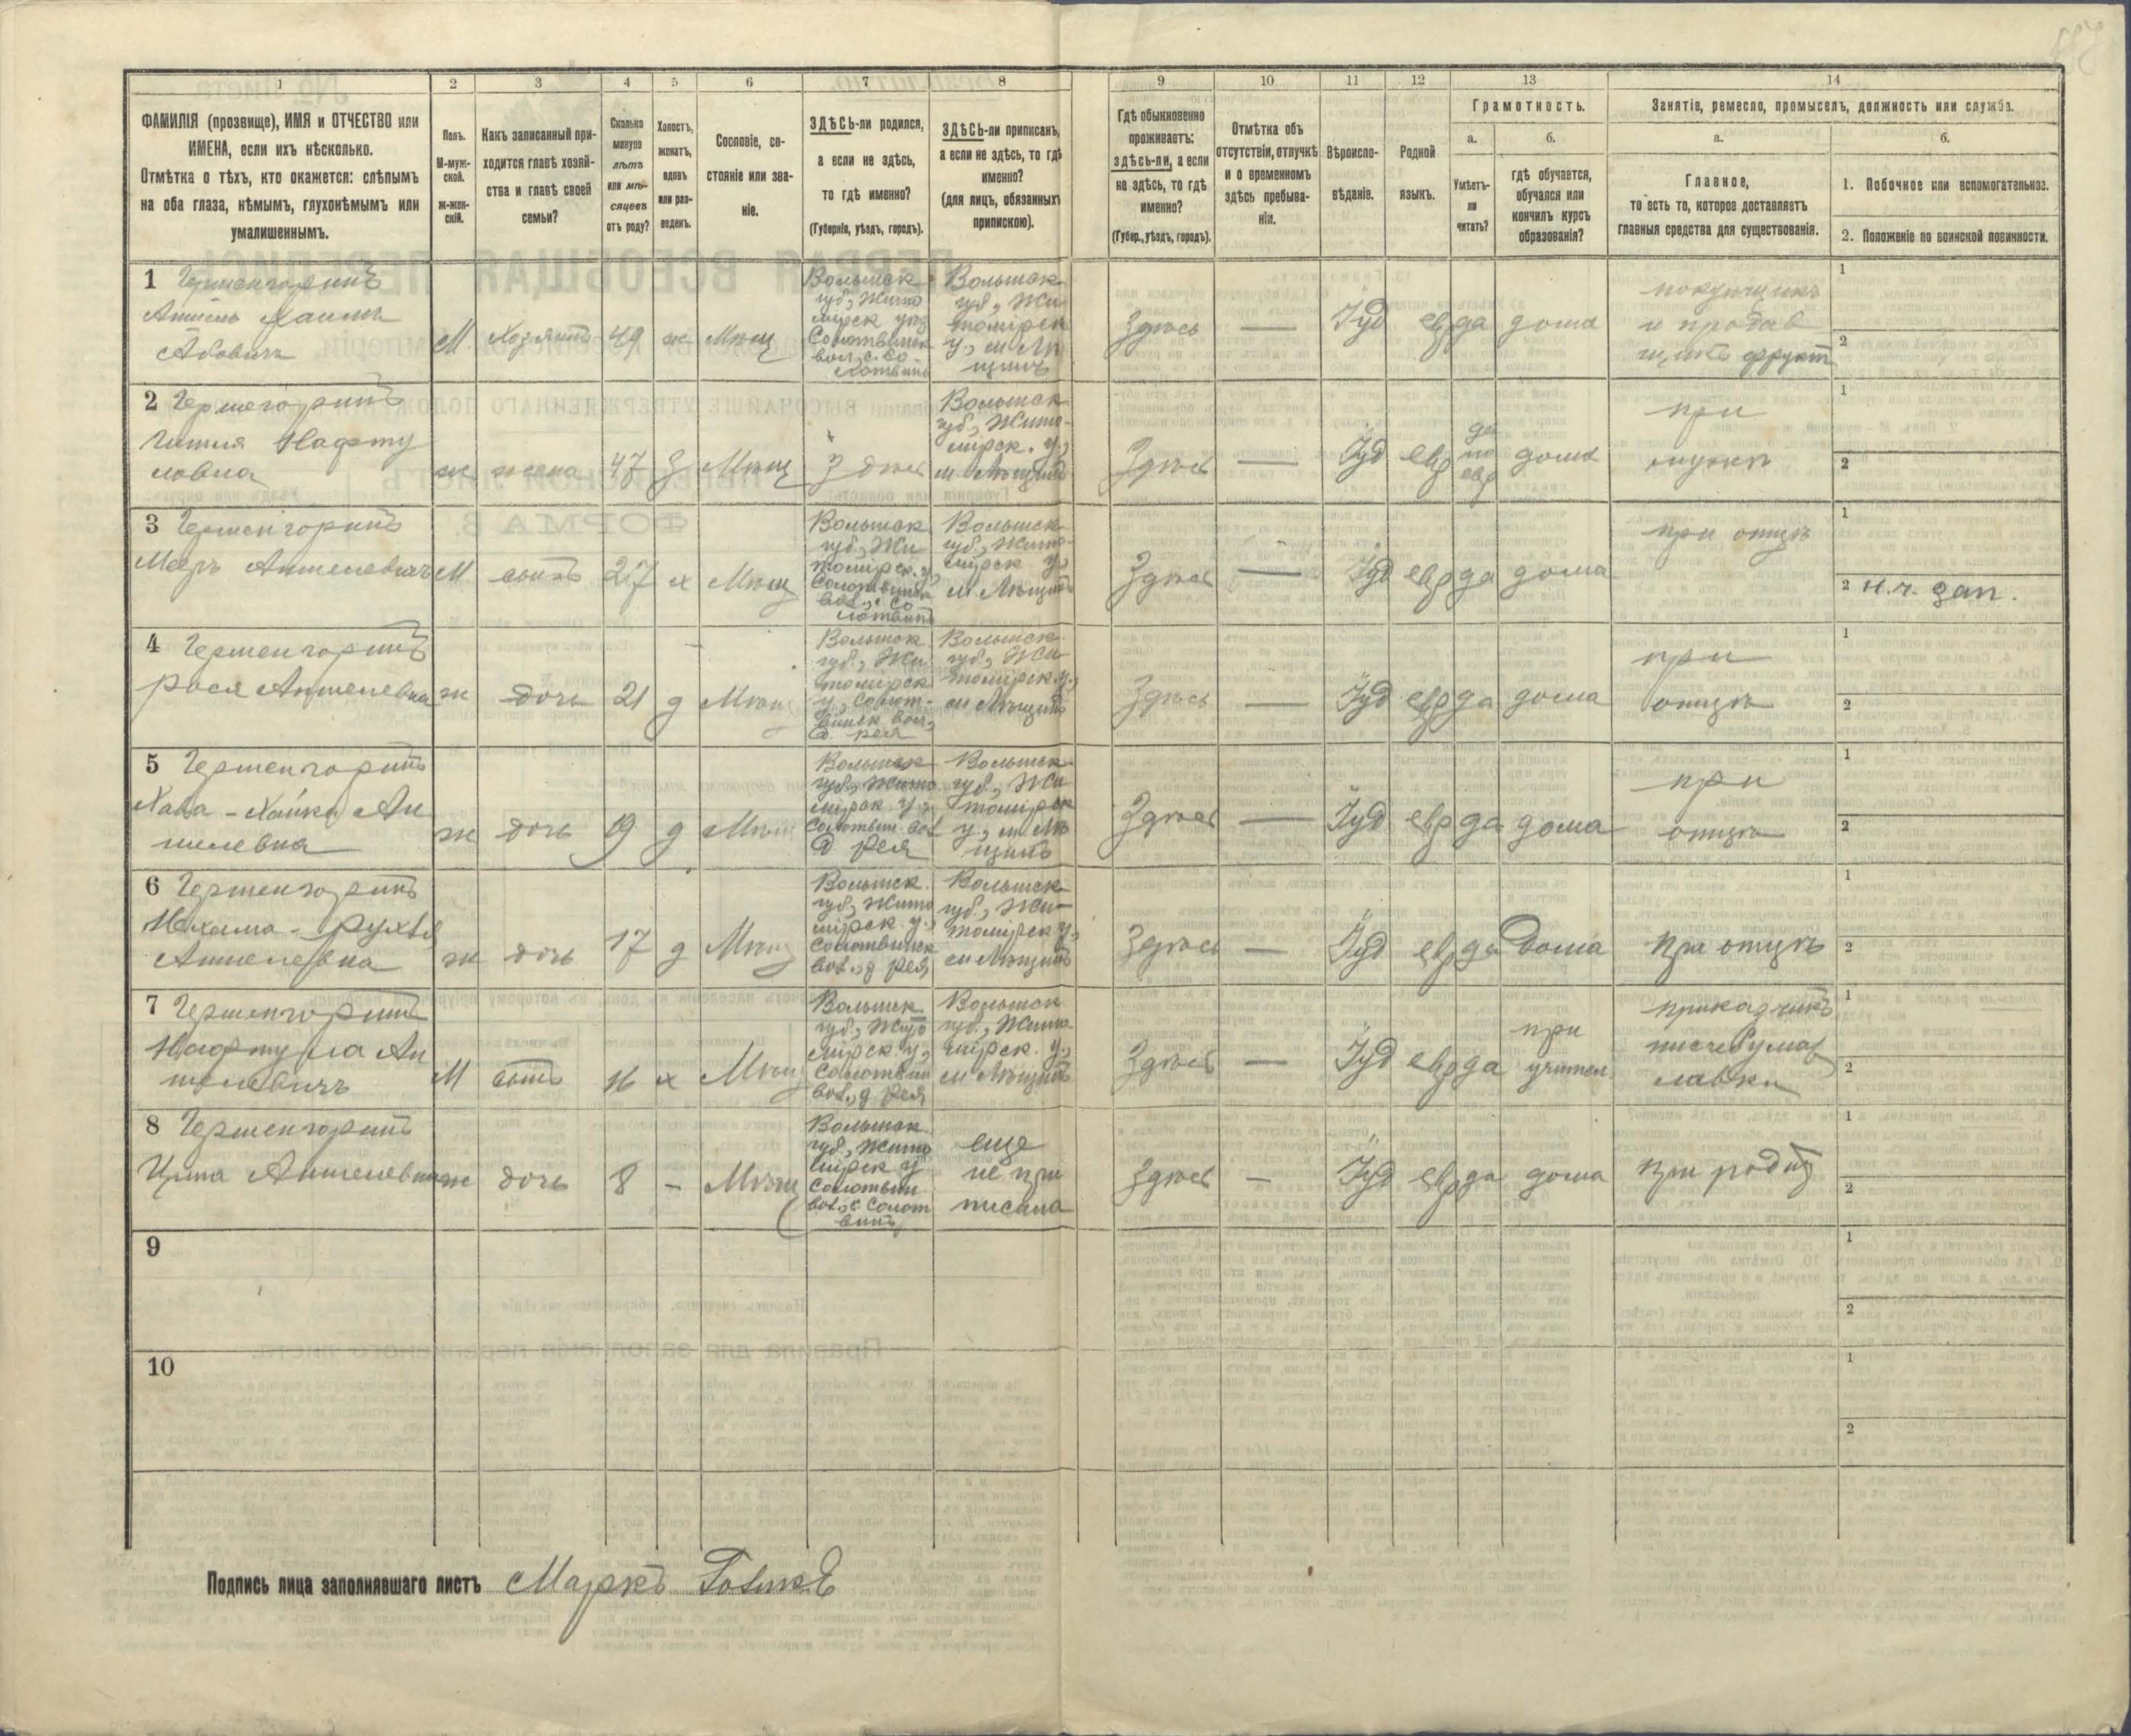 1
2
3
4
5
6
7
8
9
10
11
12
13
14
ФАМИЛІЯ (прозвище), ИМЯ и ОТЧЕСТВО или
ИМЕНА, если ихъ нѣсколько.
Отмѣтка о тѣхъ, кто окажется: слѣпымъ
на оба глаза, нѣмымъ, глухонѣмымъ или
умалишеннымъ.
Полъ.
М-муж-
ской.
ж-жен-
скій.
Какъ записанный при-
ходится главѣ хозяй-
ства и главѣ своей
семьи?
Сколько
минуло
лѣтъ
или мѣ-
сяцевъ
отъ роду?
Холостъ,
женатъ,
вдовъ
или раз-
веденъ.
Сословіе, со-
стояніе или зва-
ніе.
ЗДѢСЬ-ли родился,
а если не здѣсь,
то гдѣ именно?
(Губернія, уѣздъ, городъ).
ЗДѢСЬ-ли приписанъ,
а если не здѣсь, то гдѣ
именно?
(для лицъ, обязанныхъ
припискою).
Гдѣ обыкновенно
проживаетъ:
здѣсь-ли, а если
не здѣсь, то гдѣ
именно?
(Губер., уѣздъ, городъ).
Отмѣтка объ
отсутствіи, отлучкѣ
и о временномъ
здѣсь пребыва-
ніи.
Вѣроиспо-
вѣданіе.
Родной
языкъ.
Грамотность.
а.
Умѣетъ-
ли
читать?
б.
гдѣ обучается,
обучался или
кончилъ курсъ
образованія?
Занятіе, ремесло, промыселъ, должность или служба.
а.
Главное,
то есть то, которое доставляетъ
главныя средства для существованія.
б.
1. Побочное или вспомогательное.
2. Положеніе по воинской повинности.
1 Герменгоринъ
Аншель Хаимъ
М Хозяинъ 49 ж Мѣщ
Волынск
губ., Жито
мірск
Волынск
губ., Жи
томірск
у., м. Лѣ
щинъ
Здѣсь — Іуд евр да дома
покупщикъ
и продав
щикъ фрукт
1
2
2
ловна
ж жена 47 З Мѣщ Здѣсь
Волынск
губ., Жито-
мірск. у.,
м. Лѣщинъ
Здѣсь — Іуд евр
да
по
евр
дома
при
мужѣ
1
2
3 Герменгоринъ
Мееръ Аншелевичъ
М сынъ 27 х Мѣщ
Волынск
губ., Жи
томірск. у.,
Волынск
губ., Жито-
мірск у.,
м. Лѣщинъ
Здѣсь — Іуд евр да дома
при отцѣ
1
2 н.ч. зап.
4 Герменгоринъ
Рося Аншелевна
ж дочь 21 д Мѣщ
Волынск
губ., Жи
томірск
у., Солот-
винск вол.,
д. Рея
Волынск
губ., Жи
томірск. у.,
м Лѣщинъ
Здѣсь — Іуд евр да дома
при
отцѣ
1
2
5 Герменгоринъ
Хава-Хайка Ан
шелевна
ж дочь 19 д Мѣщ
Волынск
губ., Жито
мірск у.,
Солотвин. вол
д Рея
Волынск
губ., Жи
томірск
у., м. Лѣ
щинъ
Здѣсь — Іуд евр да дома
при
отцѣ
1
2
6 Герменгоринъ
Нехама-Рухля
Аншелевна
ж дочь 17 д Мѣщ
Волынск.
губ., Жито
мірск. у.,
Солотвинск
вол., д Рея
Волынск
губ., Жи-
томірск у.,
м Лѣщинъ
Здѣсь — Іуд евр да дома
при отцѣ
1
2
7 Герменгоринъ
Нафтула Ан
шелевичъ
М сынъ 16 х Мѣщ
Волынск
губ., Жито
мірск. у.,
Солотвин
вол., д. Рея
Волынск
губ., Жито-
мірск. у.,
м Лѣщинъ
Здѣсь — Іуд евр да
при
учител.
приказчикъ
писчебумаж
лавки
1
2
8 Герменгоринъ
Ципа Аншелевна
ж дочь 8 – Мѣщ
Волынск.
губ., Жито
мірск у
Солотвин
вол., с. Солот
винъ
еще
не при
писана
Здѣсь — Іуд евр да дома
при родит
1
2
9
1
2
10
1
2
Подпись лица заполнявшаго листъ Маркъ